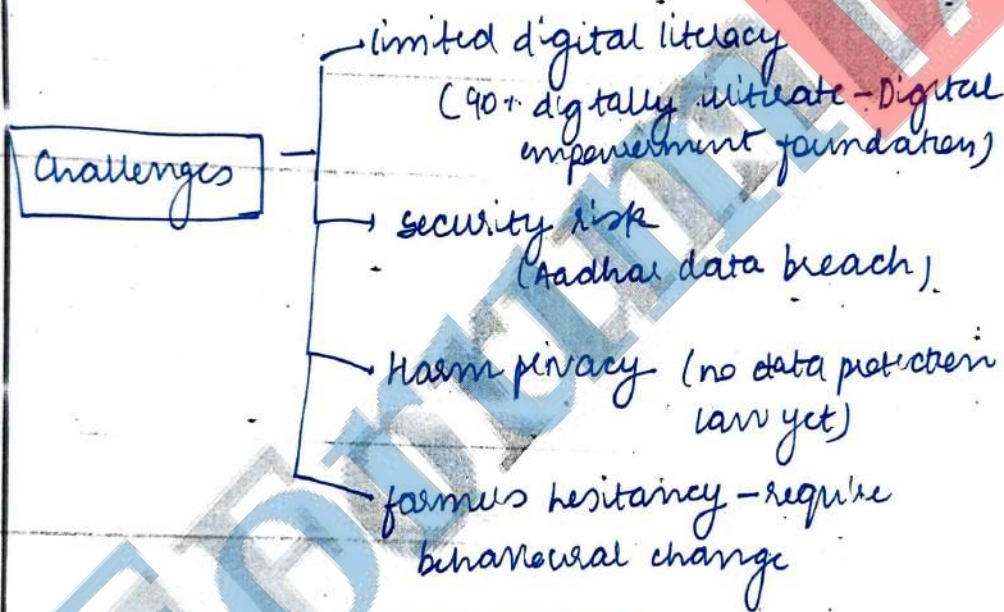 limited digital literacy
(90% digitally illiterate - Digital
empowerment foundation)
Challenges
security risk
(Aadhar data breach)
Harm privacy (no data protection
law yet)
farmers hesitancy - require
behavioural change